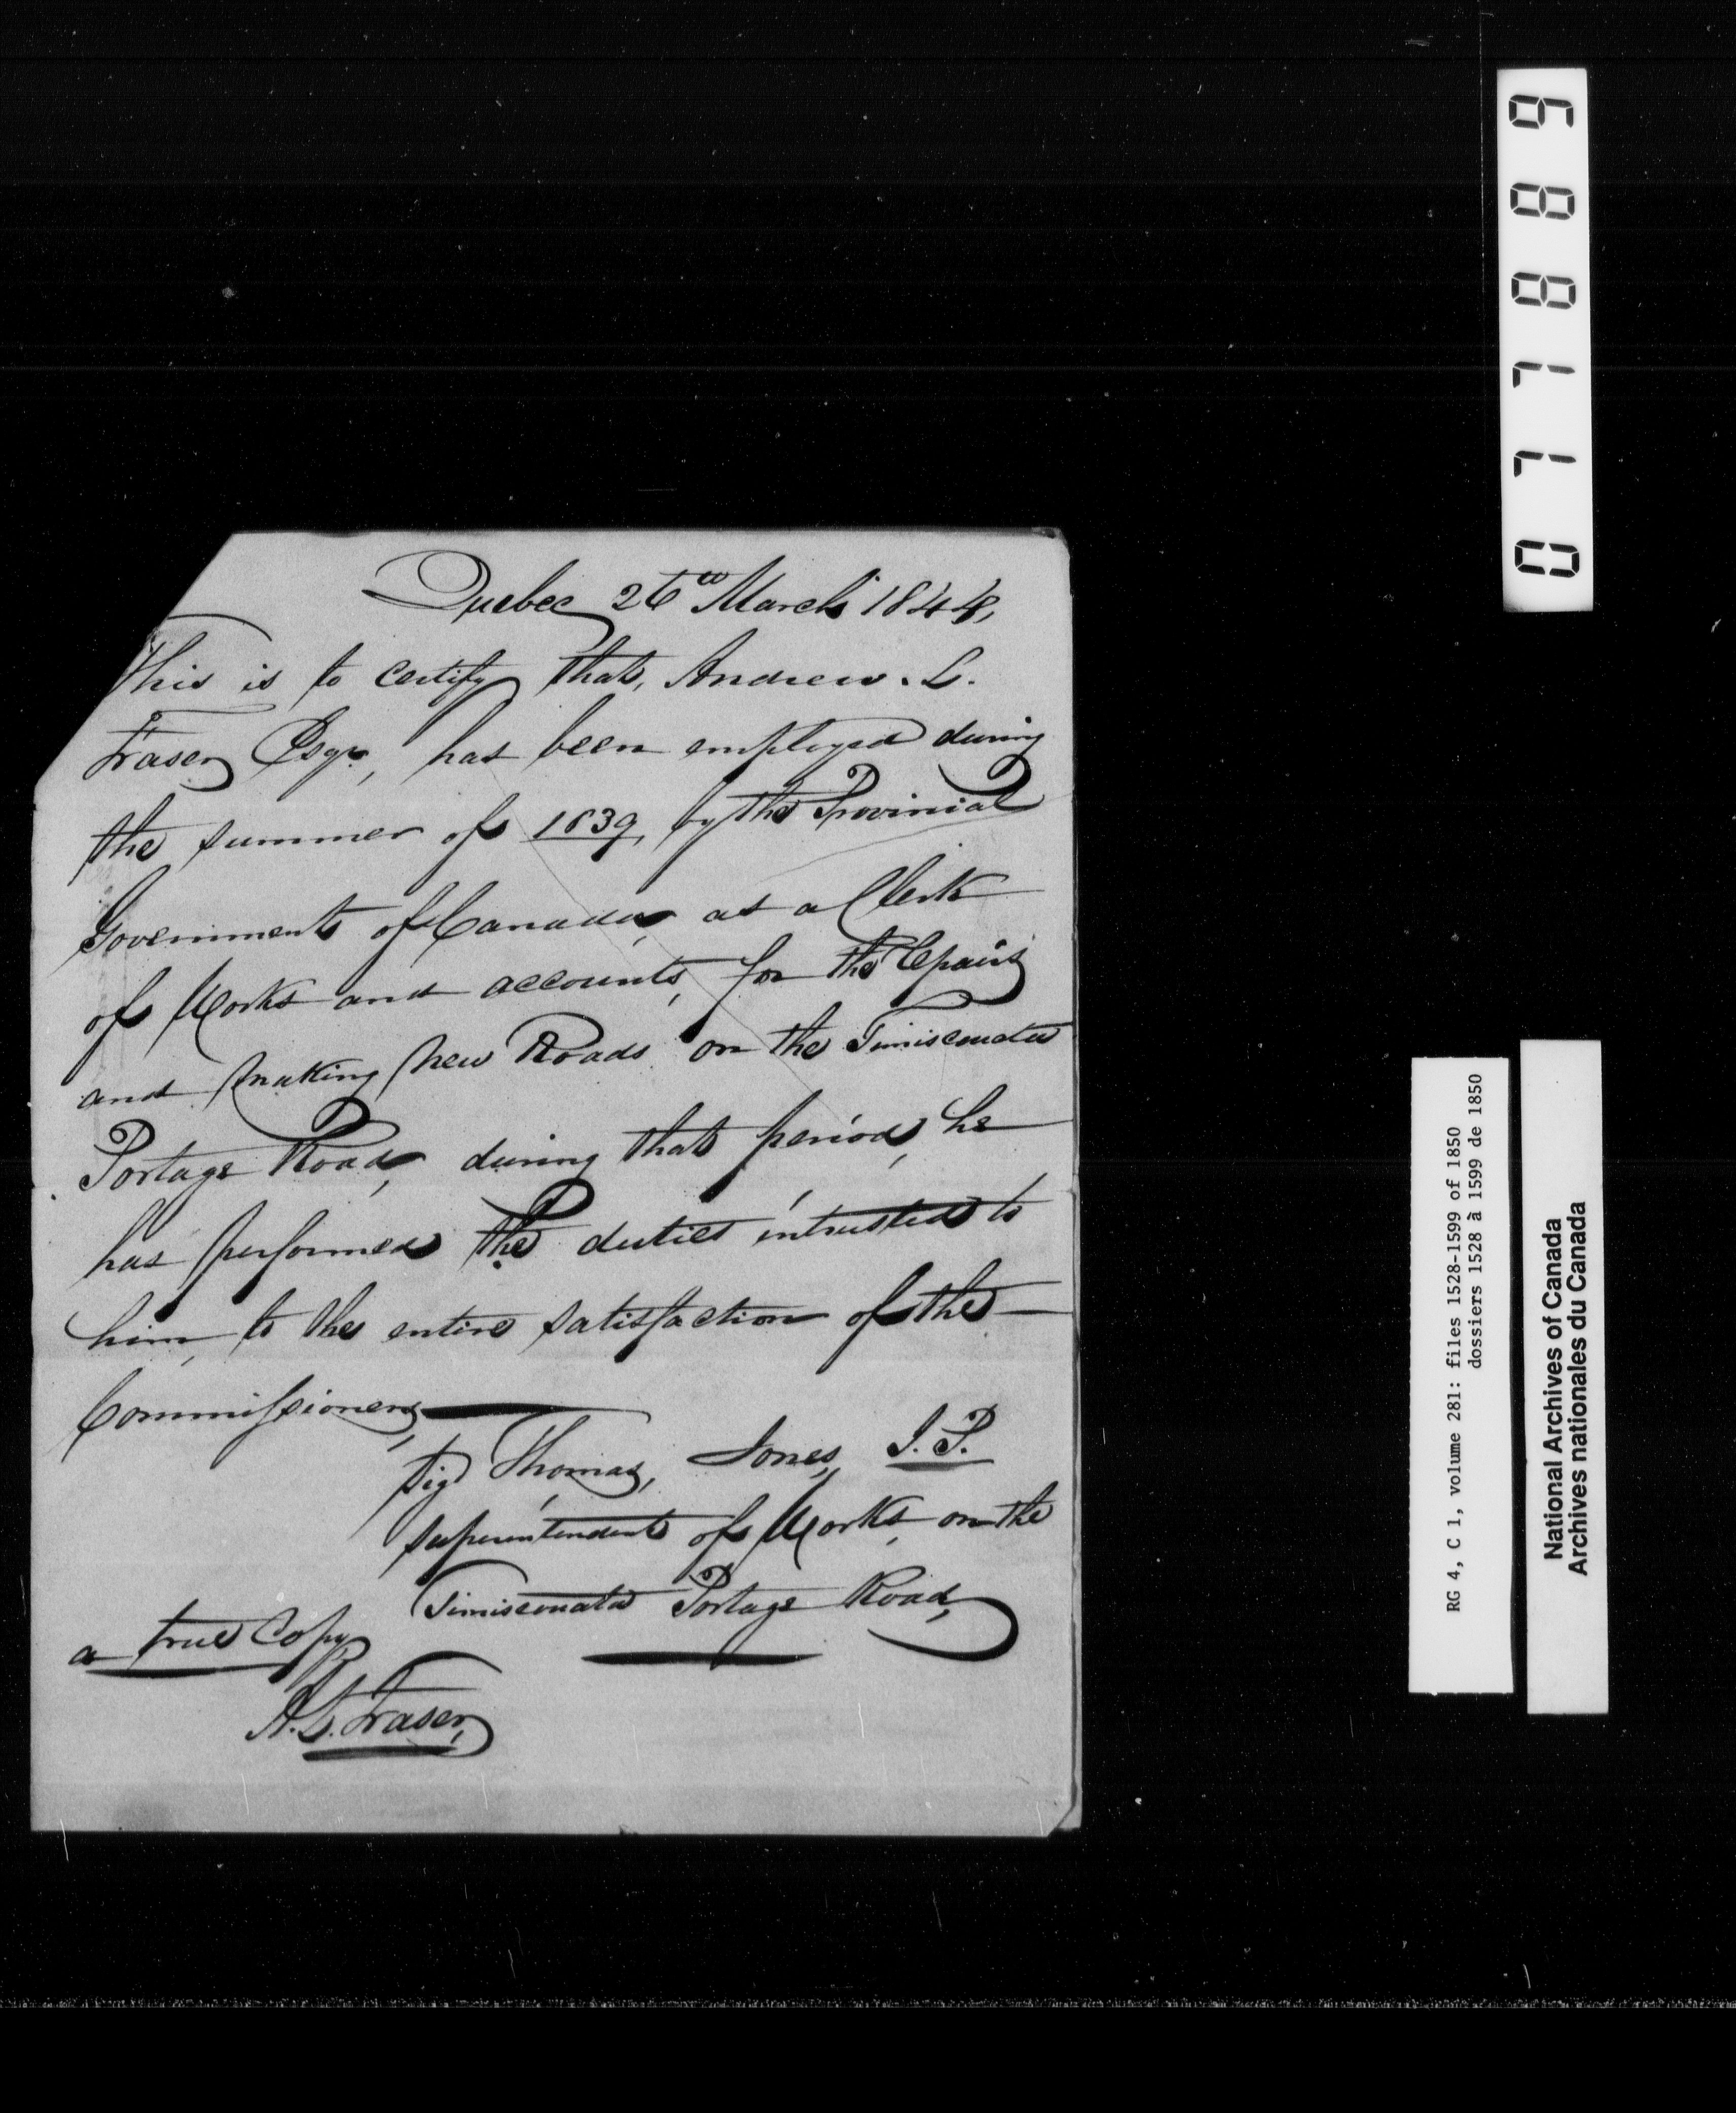 Quebec 26th March 1844,
This is to certify that, Andrew. L.
Fraser Esqr, has been employed during
the summer of 1839, by the Provinial
Government of Canada, as a Clerk
of Works and accounts, for the Repairs
and making new Roads on the Timiscouata
Portage Road, during that period, he
has performed the duties intrusted to
him, to the entire satisfaction of the
Commissioners,
Sigd Thomas, Jones, J.P.
superintendent of Works, on the
Timiscouata Portage Road,
a true Copy
A.L. Fraser,
077889
RG 4, C 1, volume 281: files 1528-1599 of 1850
dossiers 1528 à 1599 de 1850
National Archives of Canada
Archives nationales du Canada